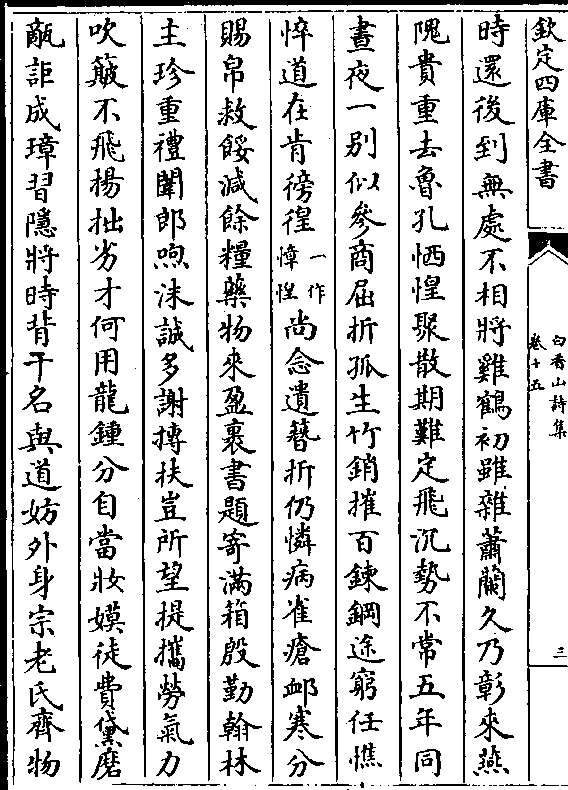 欽定四庫全書
白香山詩集
卷十五
三
時還後到無處不相將雞鶴初雖雜蕭蘭久乃彰來燕
隗貴重去魯孔恓惶聚散期難定飛沉勢不常五年同
晝夜一別似參商屈折孤生竹銷摧百鍊鋼途窮任憔
悴道在肯徬徨一作慞惶尚念遺簪折仍憐病雀瘡䘏寒分
賜帛救餒減餘糧藥物來盈裹書題寄滿箱殷勤翰林
主珍重禮闈郎喣沬誠多謝摶扶豈所望提攜勞氣力
吹簸不飛揚拙劣才何用龍鍾分自當妝嫫徒費黛磨
甋詎成璋習隱將時背干名與道妨外身宗老氏齊物